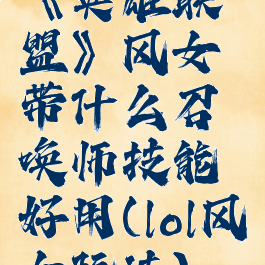 《英雄联
盟》风女
带什么召
唤师技能
好用(lol风